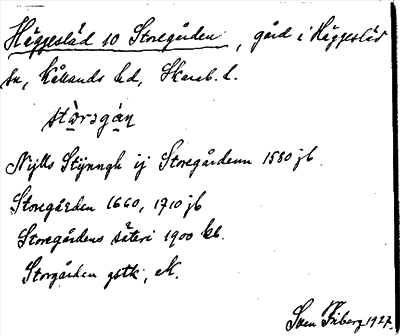 Häggesled 10 Storegården, gård i Häggesled
sn, Kållands hd, Skarab. l.
störsgán
Nijlls Stÿnngh ij Storegårdenn 1580 jb
Storegården 1660, 1710 jb
Storegårdens säteri 1900 kb.
Storgården gstk, EK.
Sven Friberg 1927.